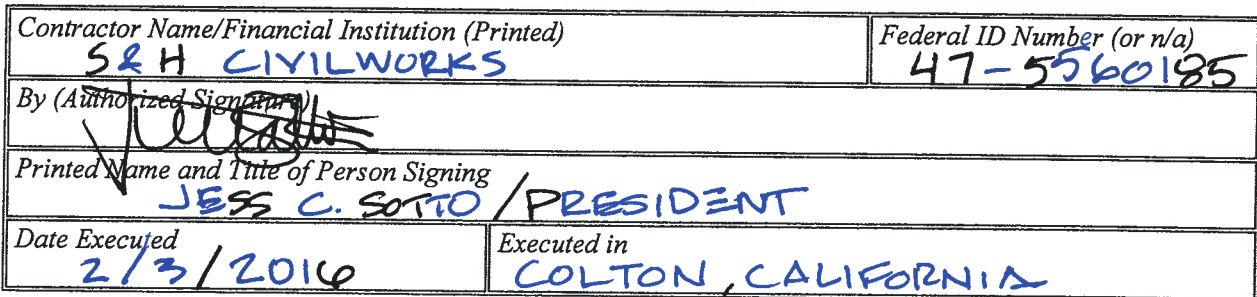 Contractor Name/Financial Institution (Printed)
S & H CIVILWORKS
Federal ID Number (or n/a)
47-5560185
By (Authorized Signature)
Printed Name and Title of Person Signing
JESS C. SOTTO / PRESIDENT
Date Executed
2/3/2016
Executed in
COLTON, CALIFORNIA